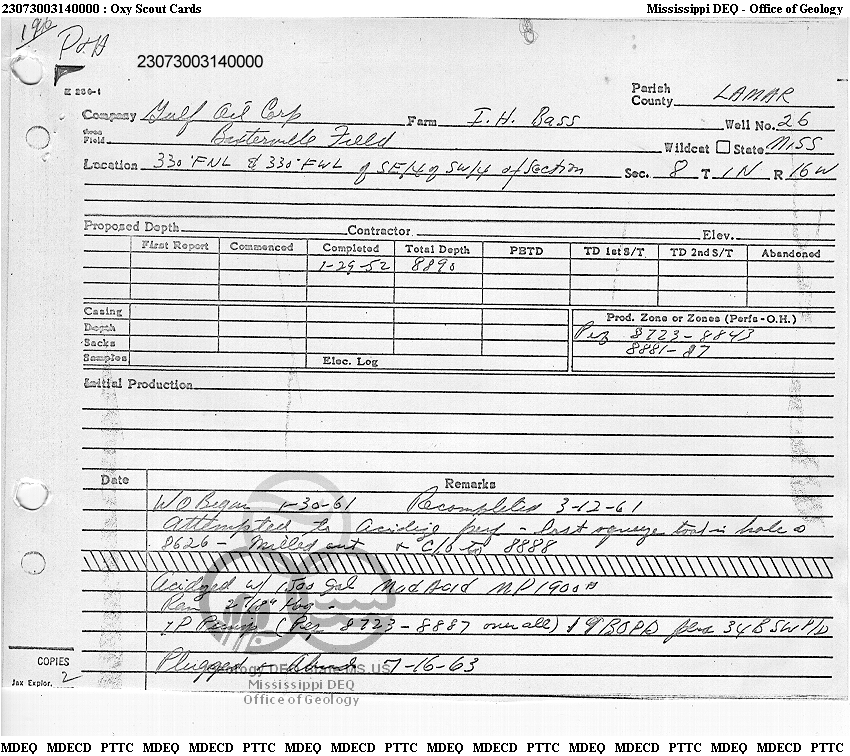 23073003140000 : Oxy Scout Cards Mississippi DEQ - Office of Geology
P&A
23073003140000
E 286-1
Parish
County LAMAR
Company Gulf Oil Corp Farm I.H. Bass Well No. 26
Field Baxterville Field Wildcat State Miss
Location 330' FNL & 330' FWL of SE/4 of SW/4 of Section Sec. 8 T 1N R 16W
Proposed Depth Contractor Elev.
First Report Commenced Completed Total Depth PBTD TD 1st S/T TD 2nd S/T Abandoned
1-29-52 8890
Casing Prod. Zone or Zones (Perfs-O.H.)
Depth 8723-8843
Sacks 8881-87
Samples Elec. Log
Initial Production
Date Remarks
WO Began 1-30-61 Recompleted 3-12-61
Attempted to acidize perf - Lost squeeze tool in hole @
8626 - Milled out & C/O to 8888
Acidized w/ 1500 gal Mud Acid MP 1900#
Ran 2 7/8" tbg -
IP Pump (Perf 8723-8887 overall) BOPD plus 34 BSWPD
Plugged & Aband 7-16-63
COPIES
2
Jax Explor.
Mississippi DEQ
Office of Geology
MDEQ MDECD PTTC MDEQ MDECD PTTC MDEQ MDECD PTTC MDEQ MDECD PTTC MDEQ MDECD PTTC MDEQ MDECD PTTC